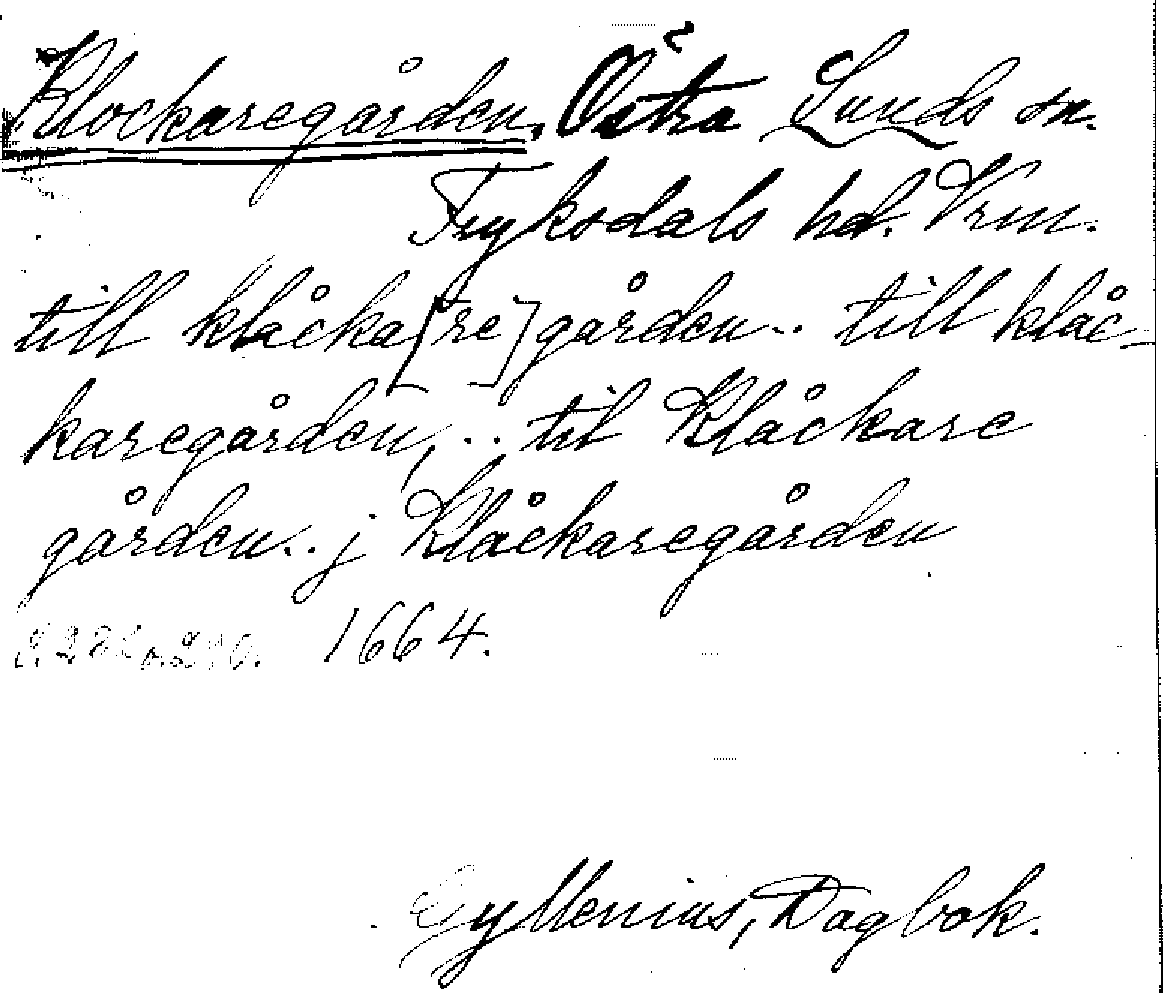 Klockaregården, Östra Sunds sn.
Fryksdals hd. Vrm.
till klåcka[re]gården.. till klåc-
karegården,.. til Klåckare
gården.. j Klåckaregården
1664.
Gyllenius, Dagbok.